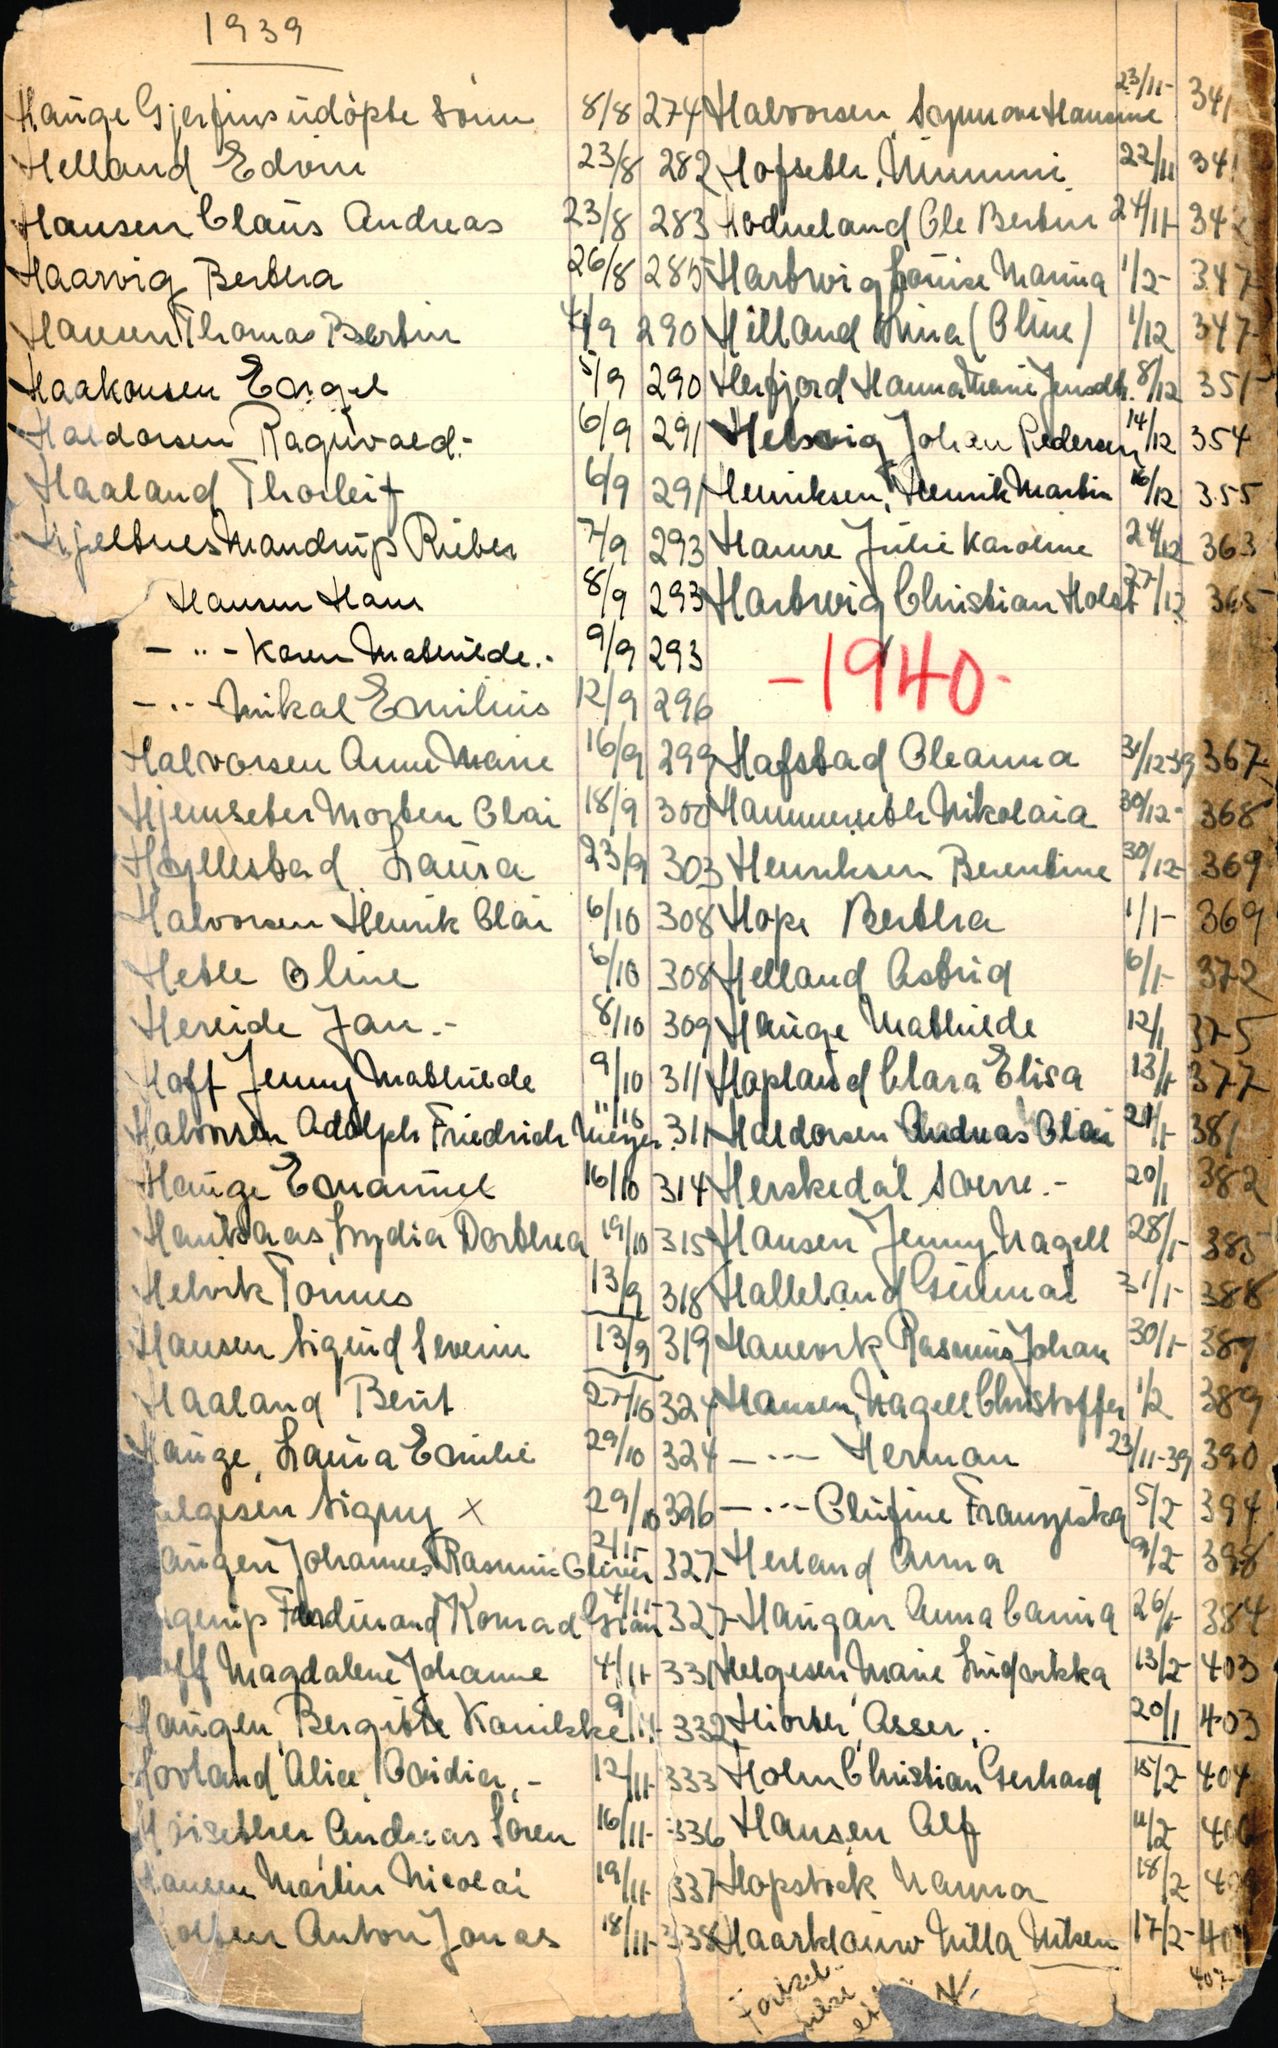 1939
Hauge Gjerfins udöpte sönn 8/8 274
Helland Edvin 23/8 282
Hansen Claus Andreas 23/8 283
Haarvig Bertha 26/8 285
Hansen Thomas Bertin 4/9 290
Haakonsen Engel 5/9 290
Haldorsen Ragnvald.- 6/9 291
Haaland Thorleif 6/9 291
Hjeltnes Mandrup Rieber 7/9 293
Hansen Hans 8/9 293
- " - Karen Mathilde.- 9/9 293
- " - Mikal Emilius 12/9 296
Halvorsen Anne Marie 16/9 299
Hjemseter Morten Olai 18/9 300
Hyllestad Laura 23/9 303
Halvorsen Henrik Olai 6/10 308
Hetle Oline 6/10 308
Hereide Jan.- 8/10 309
Hoff Jenny Mathilde 9/10 311
Halvorsen Adolph Friedrich Meyer. 11/10 311
Hauge Emanuel 16/10 314
Haukaas, Lydia Dorthea 19/10 315
Helvik Tomas 13/9 318
Hansen Sigurd Severin 13/9 319
Haaland Berit 27/10 324
Hauge, Laura Emilie 29/10 324
elgesen Signy x 29/10 326
augen Johannes Rasmus Oliver 2/11- 327
gerup Ferdinand Konrad 4/11- 327
off Magdalene Johanne 4/11- 331
Haugen, Bergitte Kanikke 9/11- 332
Hovland Alice Ovidia,- 12/11- 333
Höisether Andreas Sören 16/11- 336
Hansen Martin Nicolai 19/11- 337
Anton Jonas 18/11- 338
Halvorsen, Hansine 23/11- 341
Hofseth, Mimmi 22/11 341
Hodneland Ole Bertin 24/11- 342
Hartwig Louise Marina 1/2- 347
Hilland Lina (Oline) 1/12 347
Herfjord Hanna Marie Jensdtr. 8/12 351
Helsvig Johan Pedersen 14/12 354
Henriksen, Henrik Martin 16/12 355
Hamre Julie Karoline 24/12 363
Hartwig Christian Holst 27/12 365
-1940-
Hafstad Oleanna 31/12-39 367
Hammerseth Nikolaia 30/12- 368
Henriksen Berentine 30/12- 369
Hope Bertha 1/1- 369
Helland Astrid 6/1- 372
Hauge Mathilde 12/1 375
Hopland Clara Elisa 13/1- 377
Haldorsen Andreas Olai 21/1- 381
Herskedal Sverre.- 20/1 382
Hansen Jenny Nagell 28/1- 385
Halleland Gunnar 31/1- 388
Hanevik Rasmus Johan 30/1- 387
Hansen, Nagell Christoffer 1/2 389
- " - Herman 23/11-39 390
- " - Olufine Franziska 5/2 394
Herland Anna 9/2- 398
Haugan Anna Carina 26/1- 384
Helgesen Marie Ludvikka 13/2- 403
Hiorth, Asser,. 20/1 403
Holm Christian Gerhard 15/2- 404
Hansen Alf 11/2- 406
Hopstock Nanna 18/2
Haarklauw Milla Miken 17/2- 407
407